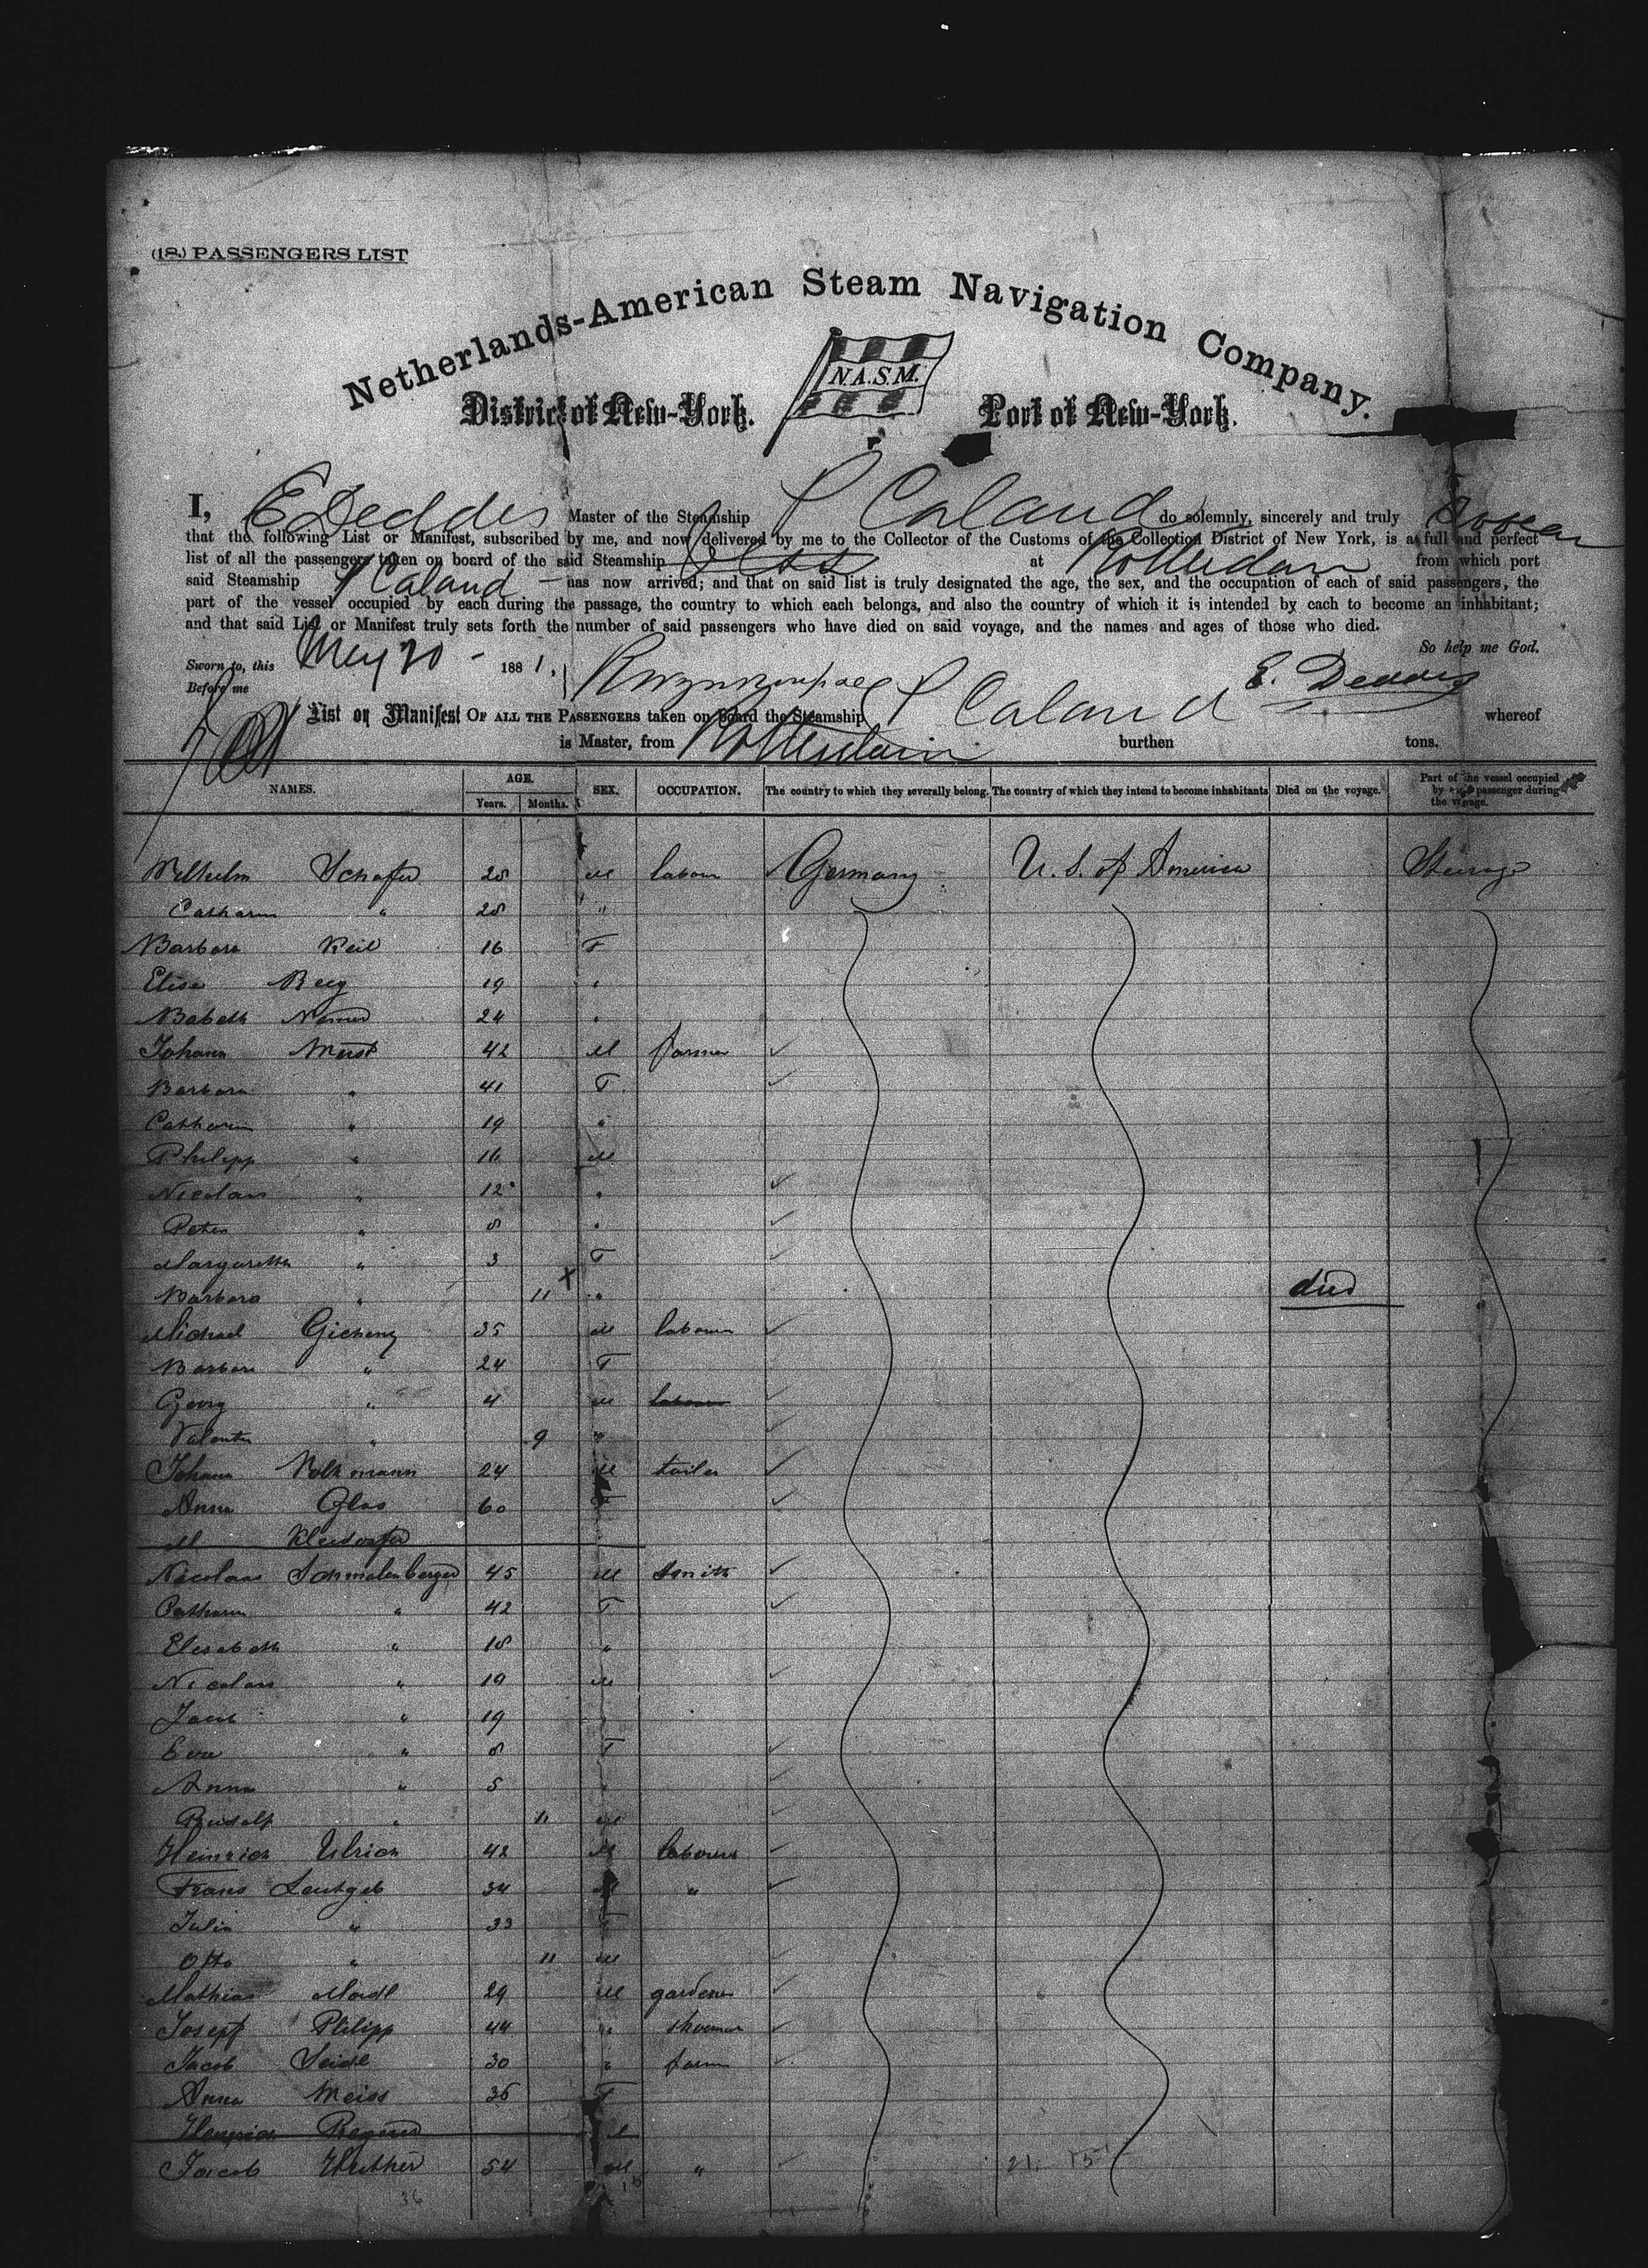 (18.) PASSENGERS LIST
Netherlands-American Steam Navigation Company.
N.A.S.M.
District of New-York. Port of New-York.
I, E Deddes Master of the Steamship P Caland do solemnly, sincerely and truly swear
that the following List or Manifest, subscribed by me, and now delivered by me to the Collector of the Customs of the Collection District of New York, is a full and perfect
list of all the passengers taken on board of the said Steamship at Rotterdam from which port
said Steamship P Caland has now arrived; and that on said list is truly designated the age, the sex, and the occupation of each of said passengers, the
part of the vessel occupied by each during the passage, the country to which each belongs, and also the country of which it is intended by each to become an inhabitant;
and that said List or Manifest truly sets forth the number of said passengers who have died on said voyage, and the names and ages of those who died.
So help me God.
Sworn to, this May 20 - 1881.
Before me E. Deddes
List or Manifest OF ALL THE PASSENGERS taken on board the Steamship P Caland whereof
is Master, from Rotterdam burthen tons.
NAMES. AGE. Years. Months. SEX. OCCUPATION. The country to which they severally belong. The country of which they intend to become inhabitants Died on the voyage. Part of the vessel occupied by each passenger during the voyage.
Wilhelm Schafer 28 M labour Germany U. S. of America Steerage
Catharin " 28 "
Barbara Keil 16 F
Elise Berg 19 "
Babeth 24 "
Johann 42 M farmer
Barbara " 41 F
Catharin " 19 "
Philipp " 16 M
Nicolaus " 12 "
Peter " 8 "
Margaretha " 3 F
Barbara " 11 x " died
Michael 35 M labour
Barbara " 24 F
Georg " 4 M labour
Valentin " 9 "
Johann Volkmann 24 M tailor
Anna Glas 60 F
M Kleidorfer
Nicolaus Schmalenberger 45 M smith
Catharin " 42 F
Elisabeth " 18 "
Nicolaus " 19 M
Jacob " 19
Eva " 8 F
Anna " 5 "
Rudolf " 11 M
Heinrich Ulrich 42 M labourer
Frans Leutgeb 34 M "
Julia " 33 F
Otto " 11 M
Mathias Maidl 29 M gardener
Josepf Philipp 44 "
Jacob Seidl 30 " farm
Anna Weiss 36 F
M
Jacob Huther 54 M "
36
21. 15